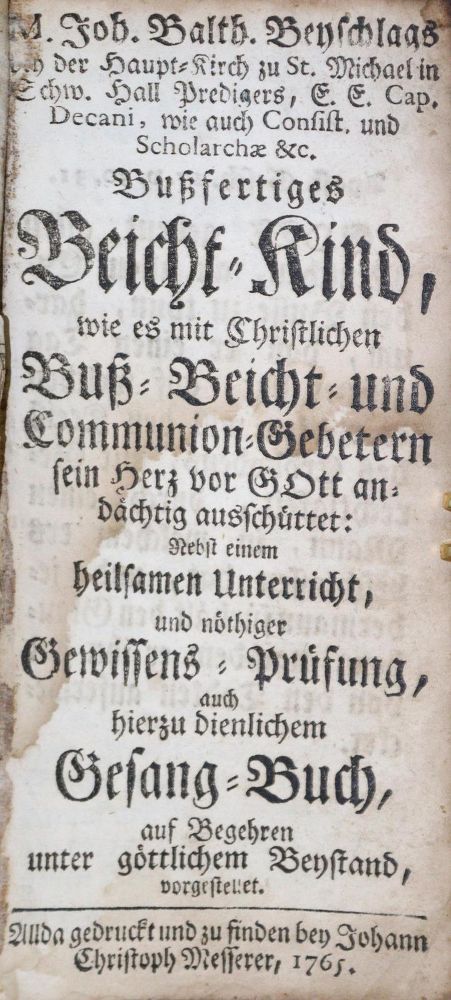 M. Joh. Balth. Beyschlags
der Haupt-Kirch zu St. Michael in
Schw. Hall Predigers, E. E. Cap.
Decani, wie auch Consist. und
Scholarchæ &c.
Bußfertiges
Beicht-Kind,
wie es mit Christlichen
Buß-Beicht-und
Communion-Gebetern
sein Herz vor GOtt an-
dächtig ausschüttet:
Nebst einem
heilsamen Unterricht,
und nöthiger
Gewissens-Prüfung,
auch
hierzu dienlichem
Gesang-Buch,
auf Begehren
unter göttlichem Beystand,
vorgestellet.
Allda gedruckt und zu finden bey Johann
Christoph Messerer, 1765.